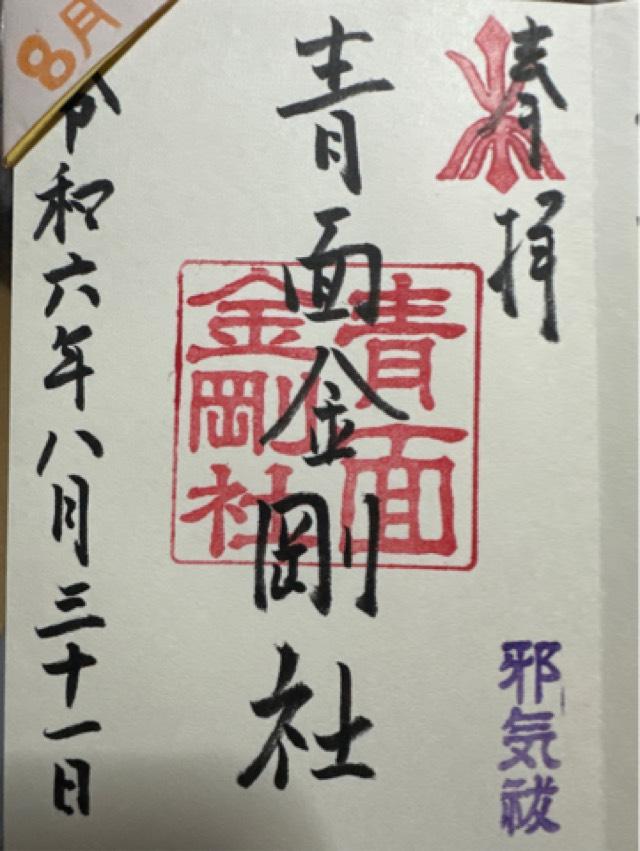 奉拝
邪気祓
青面金剛社
青面
金剛社
令和六年八月三十一日
8月